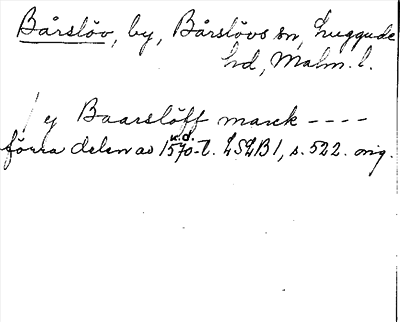 Bårslöv, by, Bårslövs sn, Luggude
hd, Malm. l.
y Baarslöff marck ----
u.d.
förra delen av 1570-t. LSLB1, s. 522. orig.